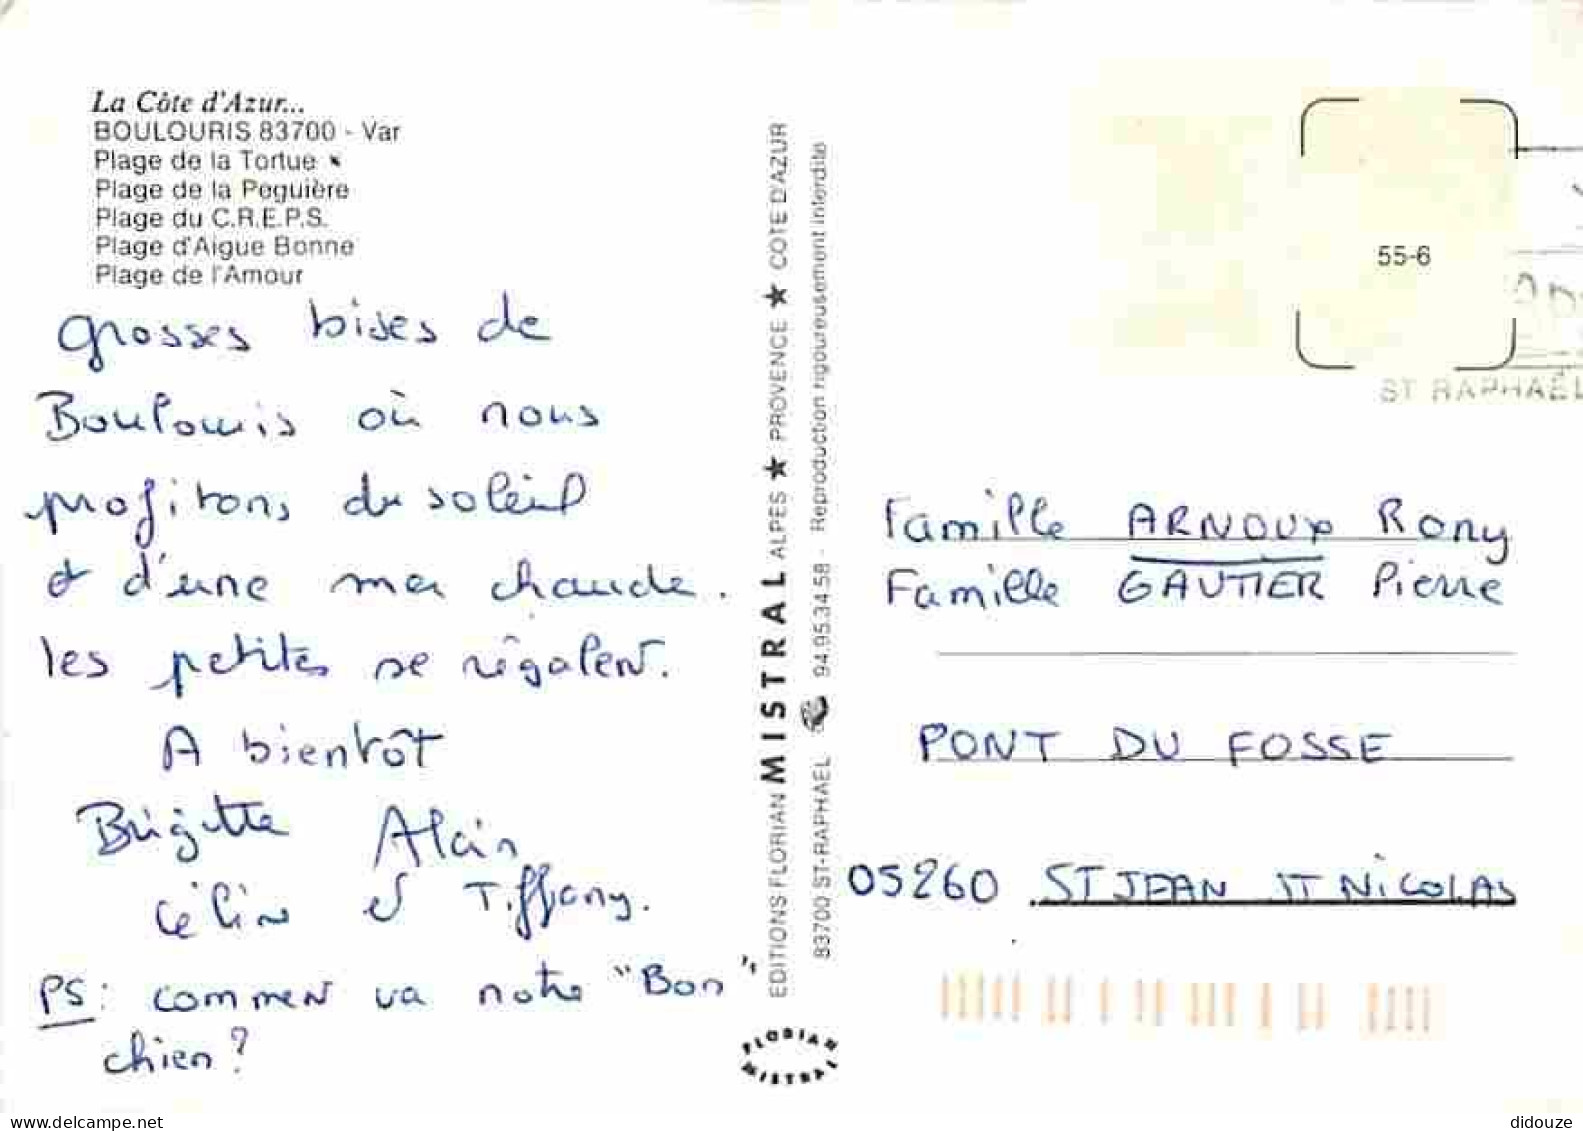 La Côte d'Azur...
BOULOURIS 83700 - Var
Plage de la Tortue
Plage de la Peguière
Plage du C.R.E.P.S.
Plage d'Aigue Bonne
Plage de l'Amour
Grosses bises de
Boulouris où nous
profitons du soleil
et d'une mer chaude.
les petites se régalent.
A bientôt
Brigitte Alain
Céline et Tiffany.
PS: comment va notre "Bon"
chien?
EDITIONS FLORIAN MISTRAL ALPES ★ PROVENCE ★ COTE D'AZUR
83700 ST-RAPHAEL 94.95.34.58 - Reproduction rigoureusement interdite
FLORIAN
MISTRAL
55-6
ST RAPHAËL
Famille ARNOUX Rony
Famille GAUTIER Pierre
PONT DU FOSSE
05260 ST JEAN ST NICOLAS
www.delcampe.net
didouze